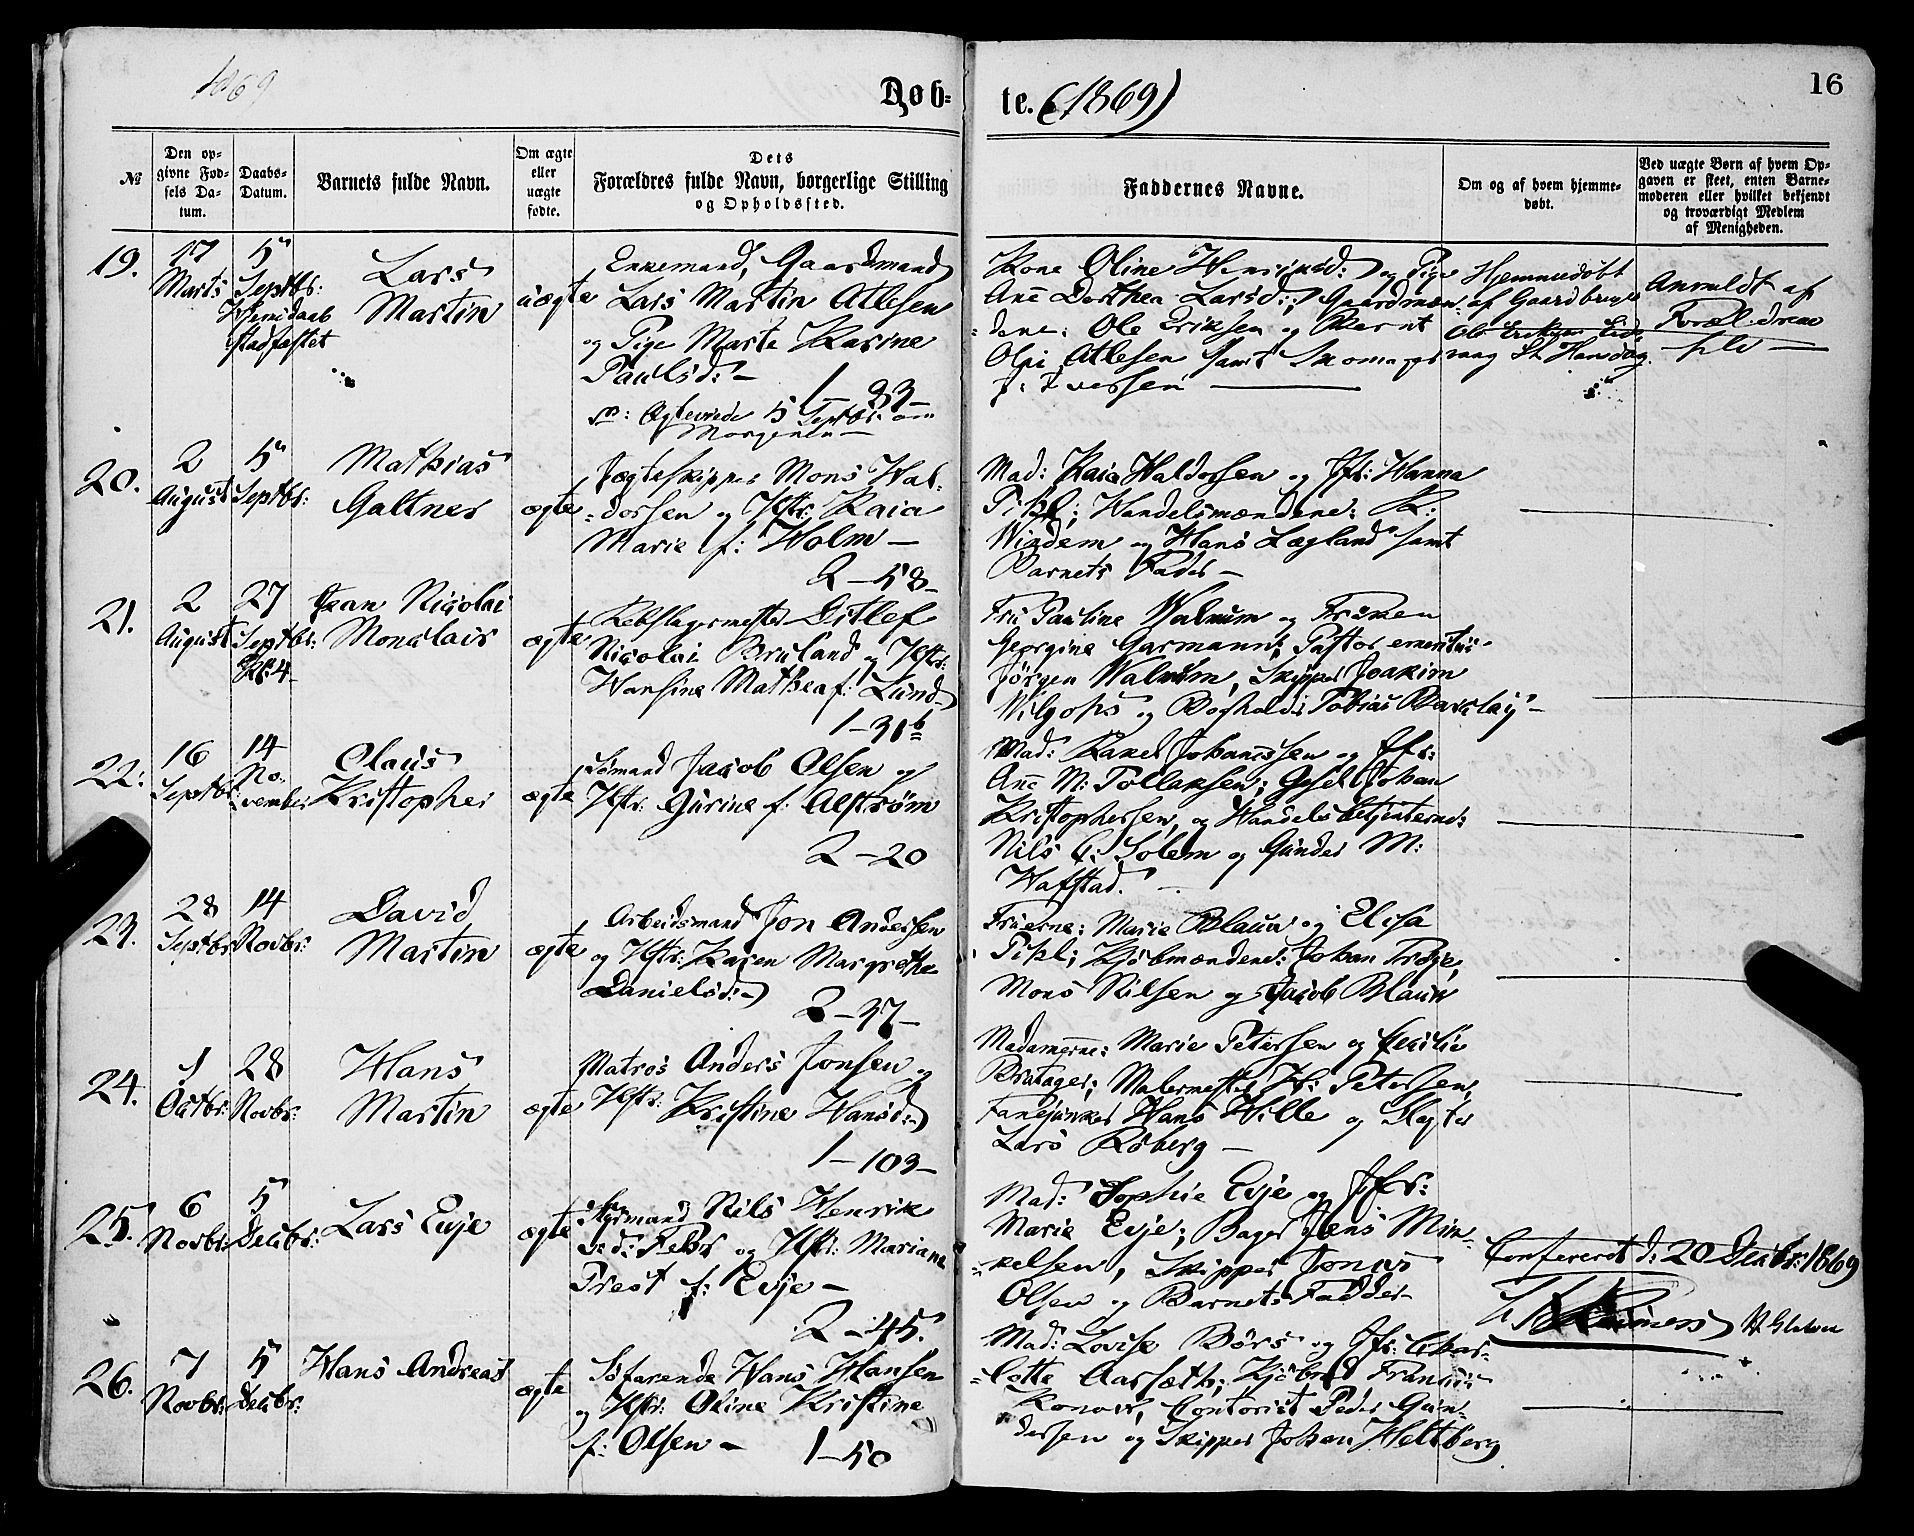 1869
Døb=
te. (1869)
16
№
Den op-
givne Fød-
sels Da-
tum.
Daabs-
Datum.
Barnets fulde Navn.
Om ægte
eller
uægte
fødte.
Dets
Forældres fulde Navn, borgerlige Stilling
og Opholdssted.
Faddernes Navne.
Om og af hvem hjemme-
døbt.
Ved uægte Børn af hvem Op-
gaven er skeet, enten Barne-
moderen eller hvilket bekjendt
og troværdigt Medlem
af Menigheden.
19.
17
Marts
5
Septbr:
Hjemdaab
stadfæstet
Lars
Martin
uægte
Enkemand, Gaardmand
Lars Martin Atlesen
og Pige Marte Karine
Paulsd: –
1–83–
Ægteviede 5 Septbr: om
Morgenen –
Kone Oline Henriksd: og Pige
Ane Dorthea Larsd:; Gaardmæn-
dene: Ole Eriksen og Bernt
Olai Atlesen samt Skomager
Iversen –
Hjemmedøbt
af Gaardbruger
Ole Eriksen Eids-
vaag St. Hansdag.
Anmeldt af
Forældrene
selv –
20.
2
August
5
Septbr:
Mathias
Galtner
ægte
Jægteskipper Mons Hal-
dorsen og Hstr: Kaia
Marie f: Holm –
2–58–
Mad: Kaia Haldorsen og Jfr: Hanna
Pihl; Handelsmændene: K:
Windem og Hans Lægland samt
Barnets Fader –
21.
2
August
27
Septbr:
Jean Nicolai
Monclair
ægte
Rebslagermester Ditlef
Nicolai Bruland og Hstr:
Hansine Mathea f: Lund
1–31b
Fru Pauline Walnum og Frøken
Georgine Garmann; Pastor emeritus
Jørgen Walnum, Skipper Joakim
og Bogholder Tobias Barclay –
22.
16
Septbr:
14
No-
vember
Claus
Kristopher
ægte
Sømand Jacob Olsen og
Hstr: Gurine f: Alstrøm
2–20
Mad: Karen Johannssen og Jfr:
Ane M: Tollaksen; Gesel Johan
Kristophersen, og Handelsbetjenterne:
Nils C: Solem og Gunder M:
Hafstad.
23.
28
Septbr:
14
Novbr:
David
Martin
ægte
Arbeidsmand Jon Andersen
og Hstr: Karen Margrethe
Danielsd: –
2–37–
Fruerne: Marie Blauw og Elisa
Pihl; Kjøbmændene: Johan Frøye,
Mons Nilsen og Jacob Blauw
24.
1
Octbr:
28
Novbr:
Hans
Martin
ægte
Matros Anders Jonsen og
Hstr: Kristine Hansd: –
1–103–
Madamerne: Marie Petersen og Cecilie
Bratager; Malermester H: Petersen,
Fanejunker Hans Hille og Slagter
Lars Røberg –
25.
6
Novbr:
5
Decbr:
Lars Evje
ægte
Styrmand Nils Henrik
Hstr: Mariane
Prest f: Evje –
2–45.
Mad: Sophie Evje og Jfr:
Marie Evje; Bager Jens Min-
kelsen, Skipper Jonas
Olsen og Barnets Fadder
Confereret d: 20 Decbr: 1869
26.
7
Novbr:
5
Decbr:
Hans Andreas
ægte
Søfarende Hans Hansen
og Hstr: Oline Kristine
f: Olsen –
1–50
Mad: Lovise Børs og Jfr: Char-
lotte Aarsæth; Kjøbmd Frantz
Konow, Contorist Peder Gun-
dersen og Skipper Johan Heltberg